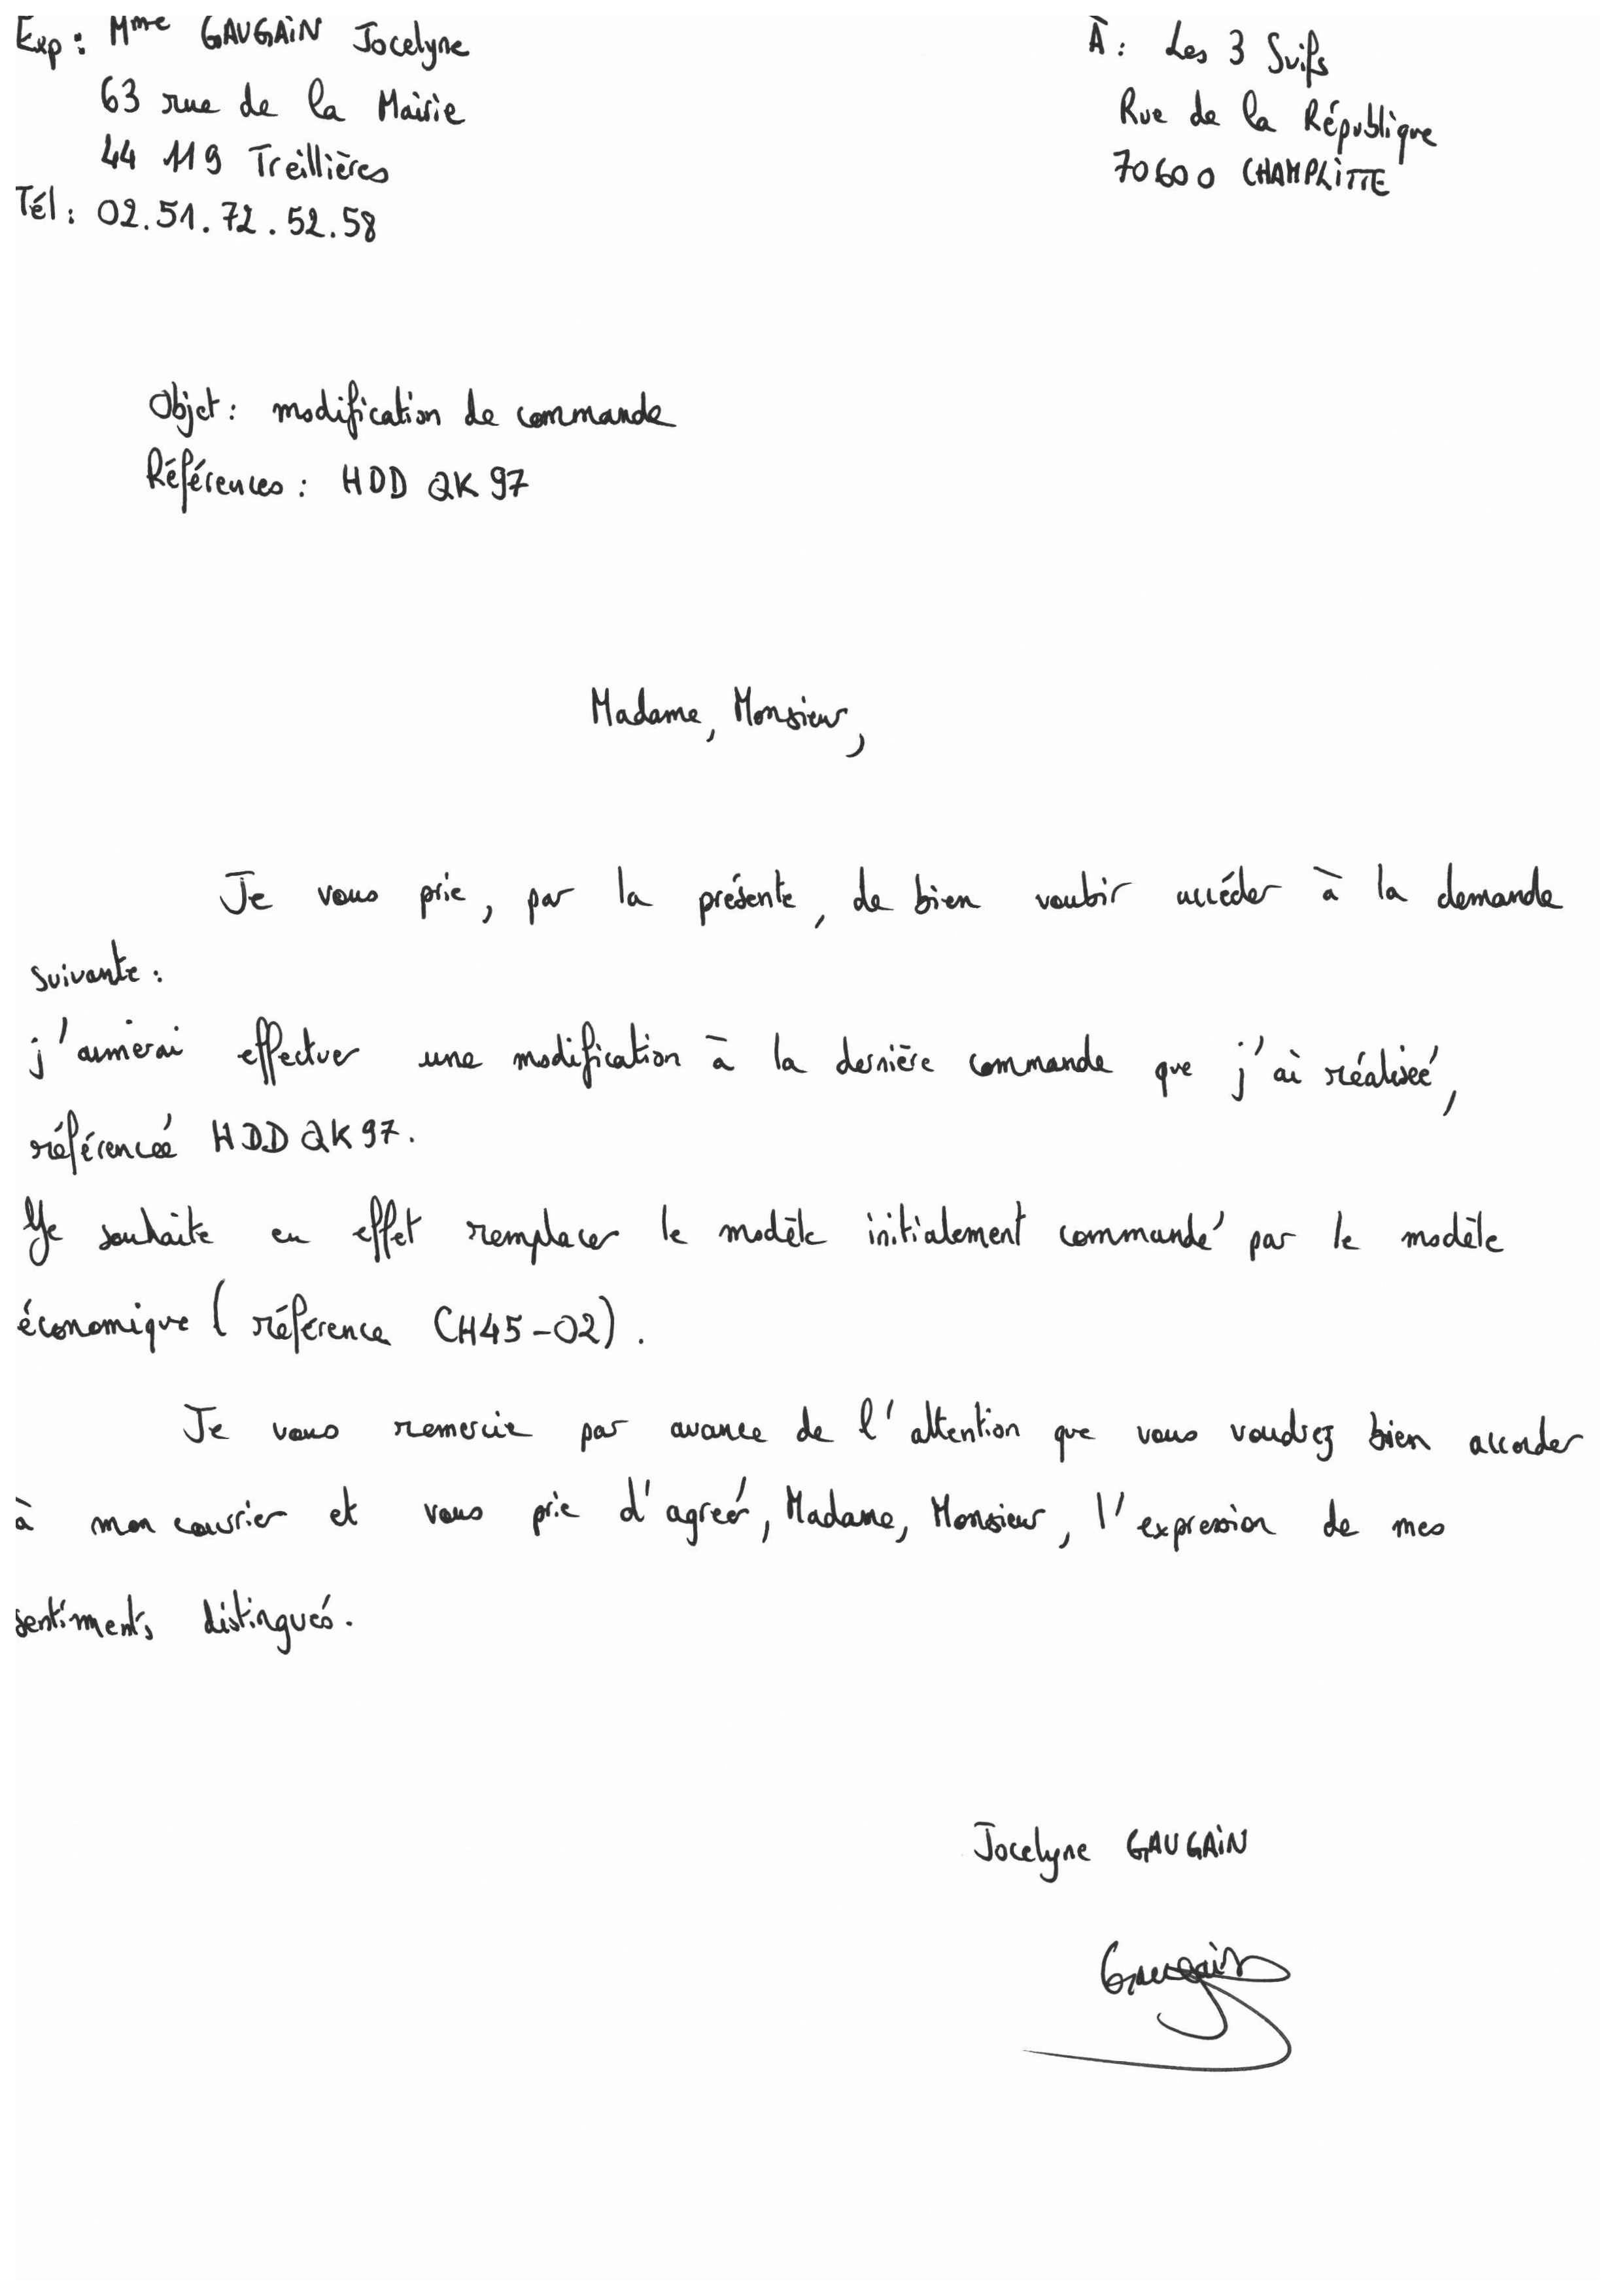 Exp : Mme GAUGAIN Jocelyne
63 rue de la Mairie
44 119 Treillières
Tél : 02.51.72.52.58
À : Les 3 Suifs
Rue de la République
70600 CHAMPLITTE
Objet : modification de commande
Références : HDD QK 97
Madame, Monsieur,
Je vous prie, par la présente, de bien vouloir accéder à la demande
suivante :
j'aimerai effectuer une modification à la dernière commande que j'ai réalisée,
référencée HDD QK 97.
Je souhaite en effet remplacer le modèle initialement commandé par le modèle
économique ( référence CH45-02) .
Je vous remercie par avance de l'attention que vous voudrez bien accorder
à mon courrier et vous prie d'agréer, Madame, Monsieur, l'expression de mes
sentiments distingués.
Jocelyne GAUGAIN
Gaugain